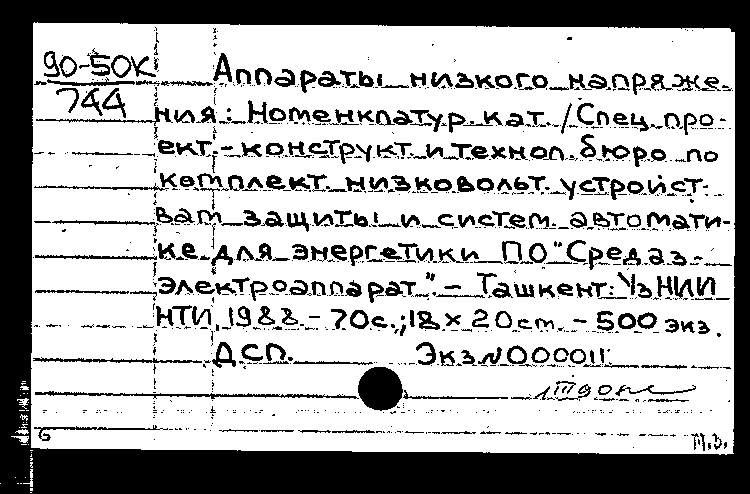 90-50К
744
Аппараты низкого напряже-
ния: Номенклатур. кат. /Спец. про-
ект.-конструкт. и технол. бюро по
комплект. низковольт. устройст-
вам защиты и систем. автомати-
ке для энергетики ПО "Средаз-
электроаппарат".- Ташкент: УзНИИ
НТИ, 1988.- 70с.; 18 × 20 cm. - 500 экз.
ДСП. Экз.N000011.
G